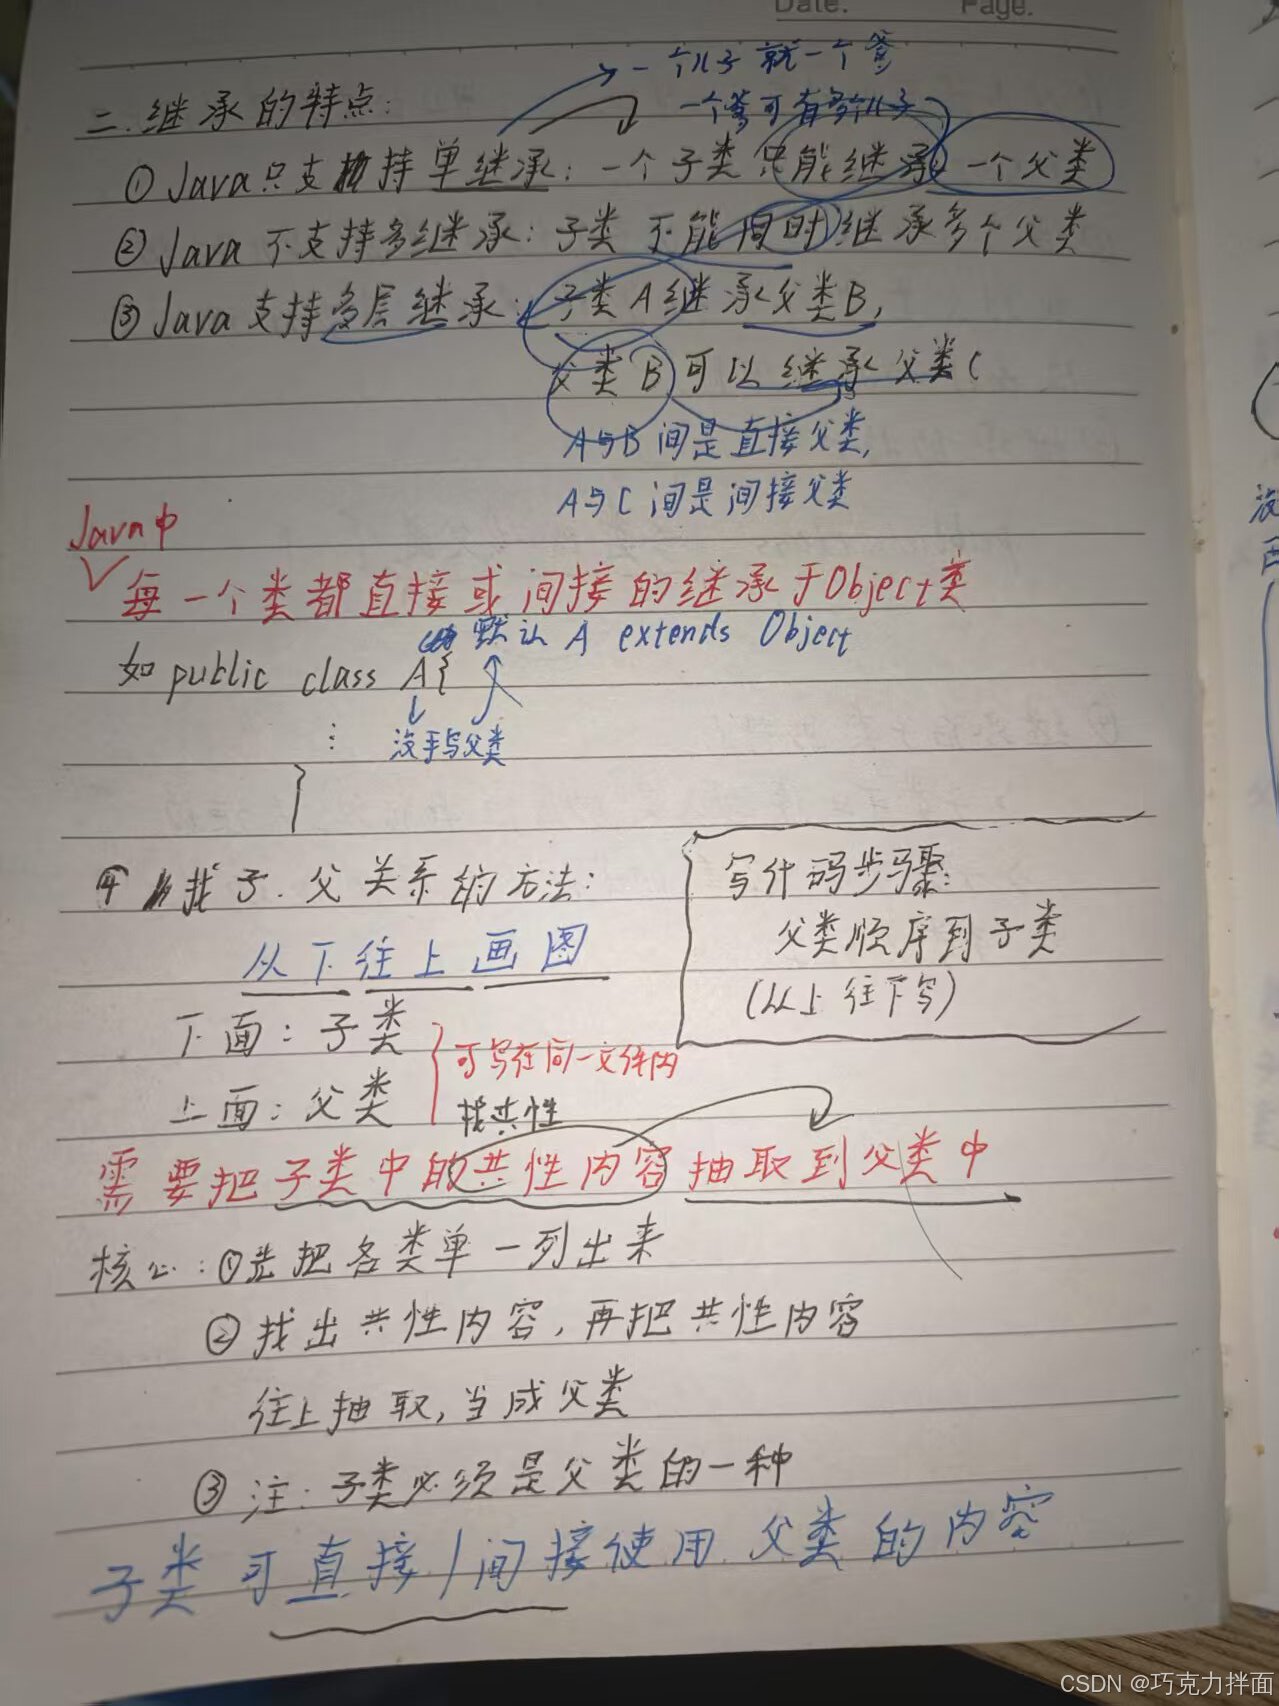 Date. Page.
一个儿子就一个爹
一个爹可有多个儿子
二.继承的特点:
①Java只支持单继承:一个子类只能继承一个父类
②Java不支持多继承:子类不能同时继承多个父类
③Java支持多层继承:子类A继承父类B,
父类B可以继承父类C
A与B间是直接父类,
A与C间是间接父类
Java中
每一个类都直接或间接的继承于Object类
默认 A extends Object
如 public class A{
没手写父类
⋮
}
4 找子.父关系的方法:
从下往上画图
下面:子类
上面:父类
可写在同一文件内
找共性
写代码步骤:
父类顺序到子类
(从上往下写)
需要把子类中的共性内容抽取到父类中
核心:①先把各类单一列出来
②找出共性内容,再把共性内容
往上抽取,当成父类
③注:子类必须是父类的一种
子类可直接/间接使用父类的内容
CSDN @巧克力拌面